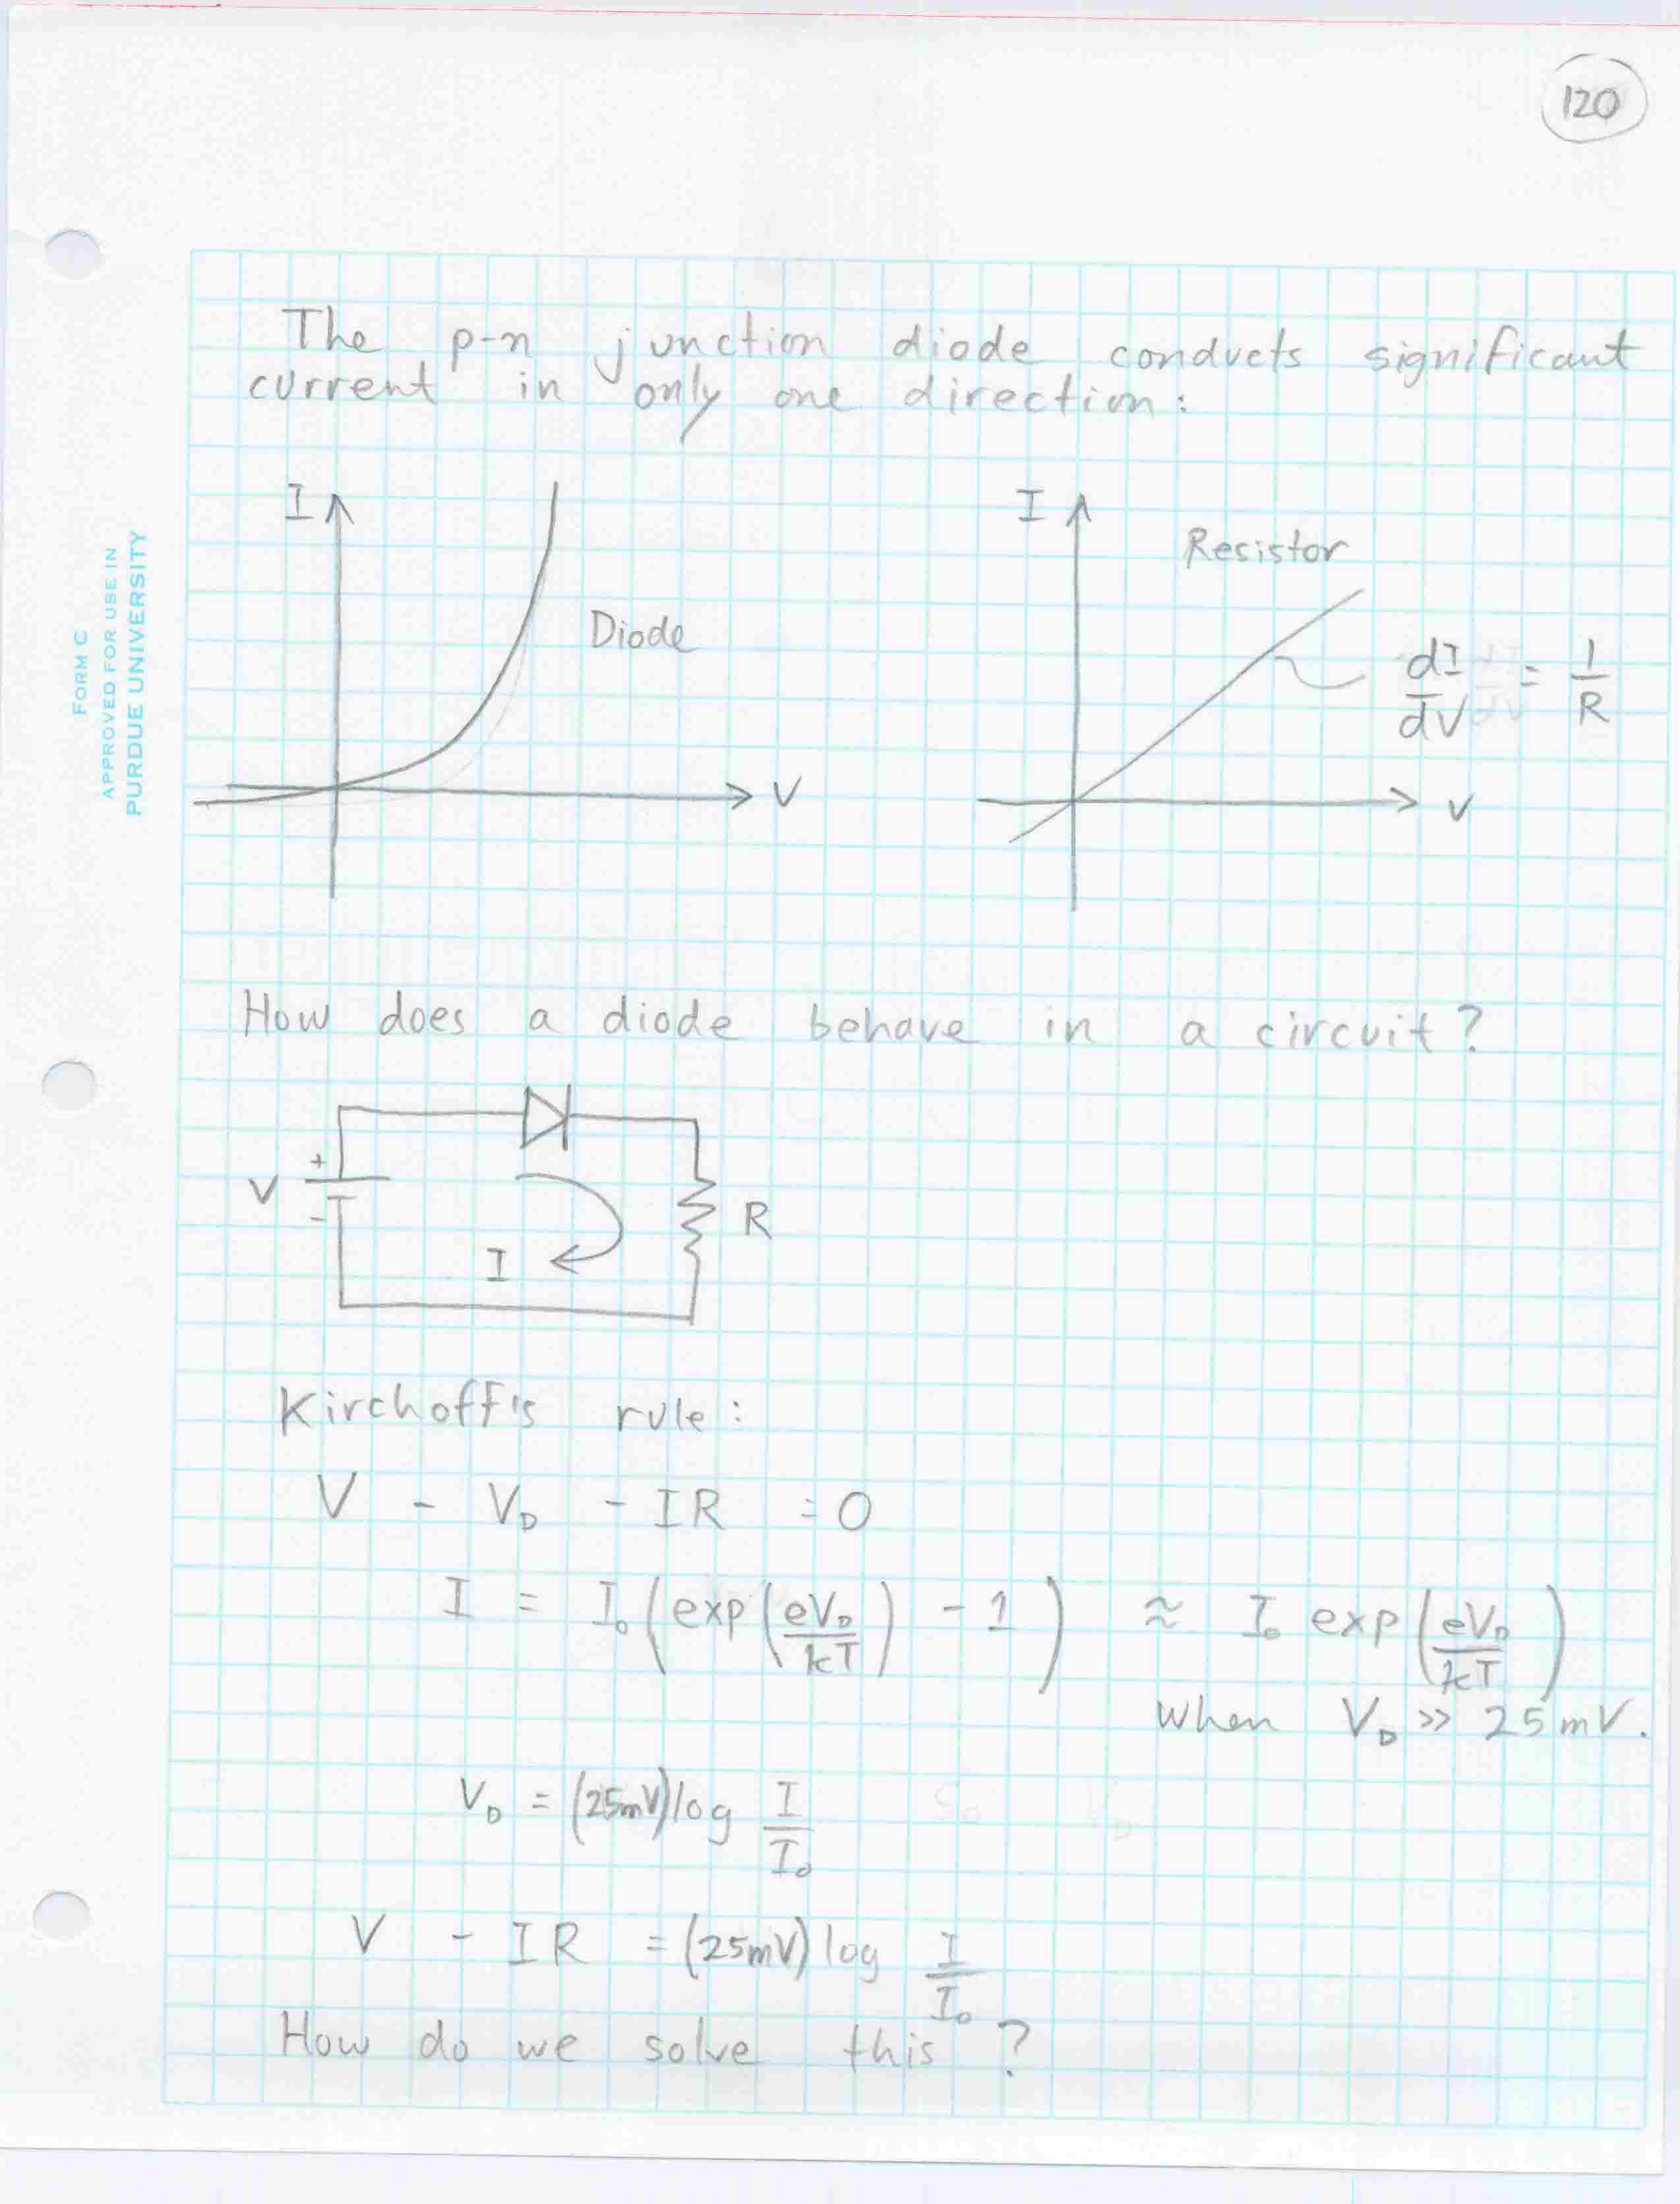 120
FORM C
APPROVED FOR USE IN
PURDUE UNIVERSITY
The p-n junction diode conducts significant
current in only one direction:
I
Diode
V
I
Resistor
dI/dV = 1/R
V
How does a diode behave in a circuit?
+
V
-
I
R
Kirchoff's rule:
V - V_D - IR = 0
I = I_0 (exp(eV_D/kT) - 1) ≈ I_0 exp(eV_D/kT)
when V_D >> 25mV.
V_D = (25mV) log I/I_0
V - IR = (25mV) log I/I_0
How do we solve this?